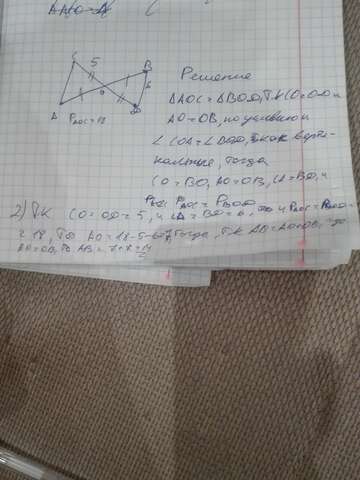 C 5 B
A O D 6
P AOC = 18
Решение
ΔAOC = ΔBOD, т.к CO=OD и
AO = OB, по условию и
∠COA = ∠BOD, так как верти-
кальные, тогда
CO = BO, AO = OB, CA = BD, и
P AOC = P BOD
2) Т.К CO = OD = 5, и CA = BD = 6, то и P AOC =
= 18, то AO = 18-5-6=7, тогда, т.к AB = AO+OB,
AO=OB, то AB = 7+7=14